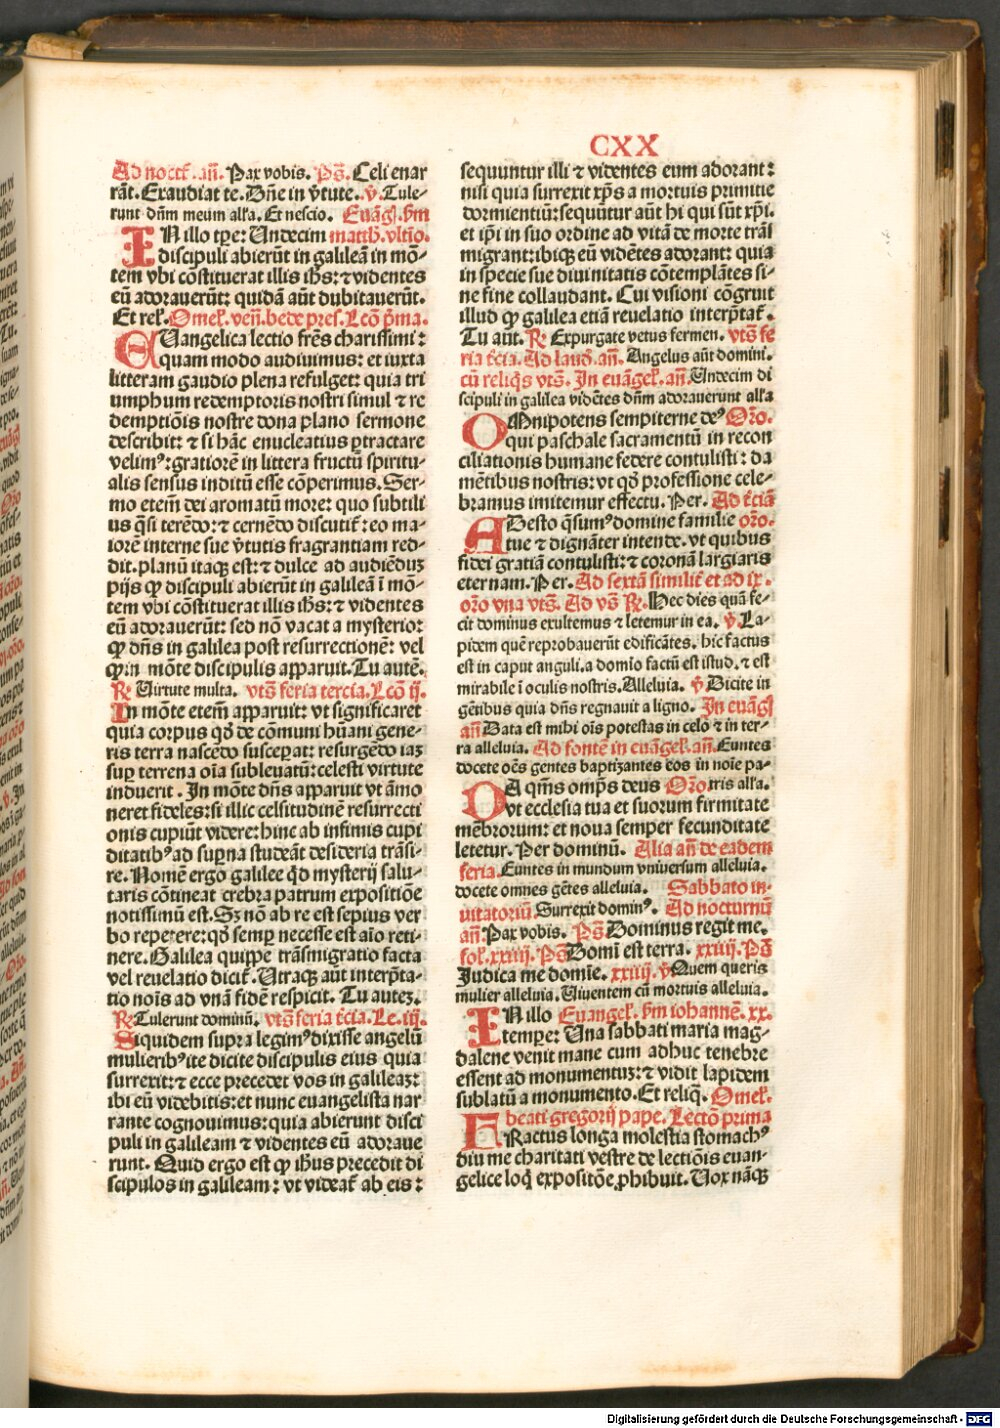 CXX
Ad noctꝭ .an̄. Pax vobis. Ps̄. Celi enar
rāt. Exaudiat te. Dn̄e in v̄tute. ℣. Tule-
runt dn̄m meum all'a. Et nescio. Euāgl̄. s̄m
IN illo tp̄e: Undecim matth. vltīo.
discipuli abierūt in galileā in mō-
tem vbi cōstituerat illis ih̄s: ⁊ videntes
eū adorauerūt: quidā aūt dubitauerūt.
Et rel'. Omel'. ven̄. bede pres. Lcō p̄ma.
EUangelica lectio fr̄es charissimi:
quam modo audiuimus: et iuxta
litteram gaudio plena refulget: quia tri
umphum redemptoris nostri simul ⁊ re
demptiōis nostre dona plano sermone
describit: ⁊ si hāc enucleatius ꝑtractare
velimꝰ: gratiorē in littera fructū spiritu-
alis sensus inditū esse cōperimus. Ser-
mo etem̄ dei aromatū more: quo subtili
us q̄si terēdo: ⁊ cernēdo discutit̄: eo ma-
iorē interne sue v̄tutis fragrantiam red-
dit. planū itaqꝫ est: ⁊ dulce ad audiēduꝫ
pijs ꝙ discipuli abierūt in galileā ī mō-
tem vbi cōstituerat illis ih̄s: ⁊ videntes
eū adorauerūt: sed nō vacat a mysterio:
ꝙ dn̄s in galilea post resurrectionē: vel
ꝙ in mōte discipulis apparuit. Tu autē.
℟. Uirtute multa. vts̄ feria tercia. Lcō ij.
In mōte etem̄ apparuit: vt significaret
quia corpus qd̄ de cōmuni hūani gene-
ris terra nascēdo susceꝑat: resurgēdo iaꝫ
suꝑ terrena oīa subleuatū: celesti virtute
induerit. In mōte dn̄s apparuit vt āmo
neret fideles: si illic celsitudinē resurrecti
onis cupiūt videre: hinc ab infimis cupi
ditatibꝰ ad suꝑna studeāt desideria trāsi-
re. Nomē ergo galilee qd̄ mysterij salu-
taris cōtineat crebra patrum expositiōe
notissimū est. Sꝫ nō ab re est sepius ver
bo repetere: qd̄ semꝑ necesse est aīo reti-
nere. Galilea quippe trāsmigratio facta
vel reuelatio dicit̄. Utraqꝫ aūt interp̄ta-
tio noīs ad vnā fidē respicit. Tu auteꝫ.
℟. Tulerunt dominū. vts̄ feria t̄cia. Lc. iij.
Siquidem supra legimꝰ dixisse angelū
mulieribꝰ ite dicite discipulis eius quia
surrexit: ⁊ ecce precedet vos in galileaꝫ:
ibi eū videbitis: et nunc euangelista nar
rante cognouimus: quia abierunt disci
puli in galileam ⁊ videntes eū adoraue
runt. Quid ergo est ꝙ ih̄us precedit di
scipulos in galileam: vt videat̄ ab eis:
sequuntur illi ⁊ videntes eum adorant:
nisi quia surrexit xp̄s a mortuis primitie
dormientiū: sequūtur aūt hi qui sūt xp̄i.
et ip̄i in suo ordine ad vitā de morte trāsī
migrant: ibiqꝫ eū vidētes adorant: quia
in specie sue diuinitatis cōtemplātes si-
ne fine collaudant. Cui visioni cōgruit
illud ꝙ galilea etiā reuelatio interp̄tat̄.
Tu aūt. ℟. Expurgate vetus fermen. vts̄ fe
ria t̄cia. Ad laud̄. an̄. Angelus aūt domini.
cū reliq̄s vts̄. In euāgel'. an̄. Undecim di
scipuli in galilea vidētes dn̄m adorauerunt all'a
OMnipotens sempiterne deꝰ Or̄o.
qui paschale sacramentū in recon
ciliationis humane federe contulisti: da
mētibus nostris: vt qd̄ professione cele-
bramus imitemur effectu. Per. Ad t̄ciā
ADesto q̄sumꝰ domine familie or̄o.
tue ⁊ dignāter intende. vt quibus
fidei gratiā contulisti: ⁊ coronā largiaris
eternam. Per. Ad sextā similit̄ et ad ix.
or̄o vna vts̄. Ad vs̄ ℟. Hec dies quā fe-
cit dominus exultemus ⁊ letemur in ea. ℣. La-
pidem quē reprobauerūt edificātes. hic factus
est in caput anguli. a domīo factū est istud. ⁊ est
mirabile ī oculis nostris. Alleluia. ℣. Dicite in
gētibus quia dn̄s regnauit a ligno. In euāgl̄
an̄ Data est mihi oīs potestas in celo ⁊ in ter-
ra alleluia. Ad fontē in euāgel'. an̄. Euntes
docete oēs gentes baptizantes eos in noīe pa-
DA qm̄s omp̄s deus Or̄o. tris all'a.
vt ecclesia tua et suorum firmitate
mēbrorum: et noua semper fecunditate
letetur. Per dominū. Alia an̄ de eadem
feria. Euntes in mundum vniuersum alleluia.
docete omnes gētes alleluia. Sabbato in-
uitatoriū Surrexit dominꝰ. Ad nocturnū
an̄. Pax vobis. Ps̄ Dominus regit me.
fol'. xxiiij. Ps̄ Domi est terra. xxiiij. Ps̄
Judica me domīe. xxiiij. ℣ Quem queris
mulier alleluia. Uiuentem cū mortuis alleluia.
IN illo Euangel'. s̄m iohannē. xx.
tempeꝛe: Una sabbati maria mag-
dalene venit mane cum adhuc tenebre
essent ad monumentuꝫ: ⁊ vidit lapidem
sublatū a monumento. Et reliq̄. Omel'.
beati gregorij pape. Lectō prima
FRactus longa molestia stomachꝰ
diu me charitati vestre de lectiōis euan-
gelice loq̄ expositōe ꝓhibuit. Uox nāqꝫ
Digitalisierung gefördert durch die Deutsche Forschungsgemeinschaft - DFG